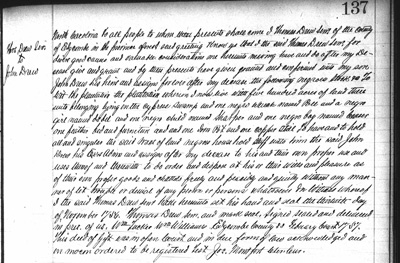 137
Thos Drew Senr
to
John Drew
North Carolina to all people to whom these presents shall come I Thomas Drew Senr of the county
of Edgecombe in the province aforesaid send greeting Know ye that I the said Thomas Drew Senr for
divers good causes and valuable considerations me hereunto moving have and do after my De-
cease give and grant and by these presents have given granted and confirmed unto my son
John Drew his heirs and assigns forever after my decease the following negroes
the plantation whereon I now live with five hundred acres of land there
unto belonging lying on the cypress swamp and one negro wench named and a negro
girl named and one negro child named and one negro boy named
one feather bed and furniture and one Iron Pot and one copper still To have and to hold
all and singular the said tract of land negroes household stuff unto him the said John
Drew his heirs and assigns after my decease to his and their own proper use and
uses and to order and dispose at his or their wills and pleasure as
of their own proper goods and chattels freely and quietly without any man-
ner of let trouble or denial of any person or persons whatsoever In witness whereof
I the said Thomas Drew Senr have hereunto set his hand and seal the day
of November 1786. Thomas Drew Senr and mark seal, signed sealed and delivered
in pres. of us. Williams Edgecombe County Febury 1787.
This deed of gift was in open Court and in due form of law acknowledged and
on motion ordered to be registered Test Jno